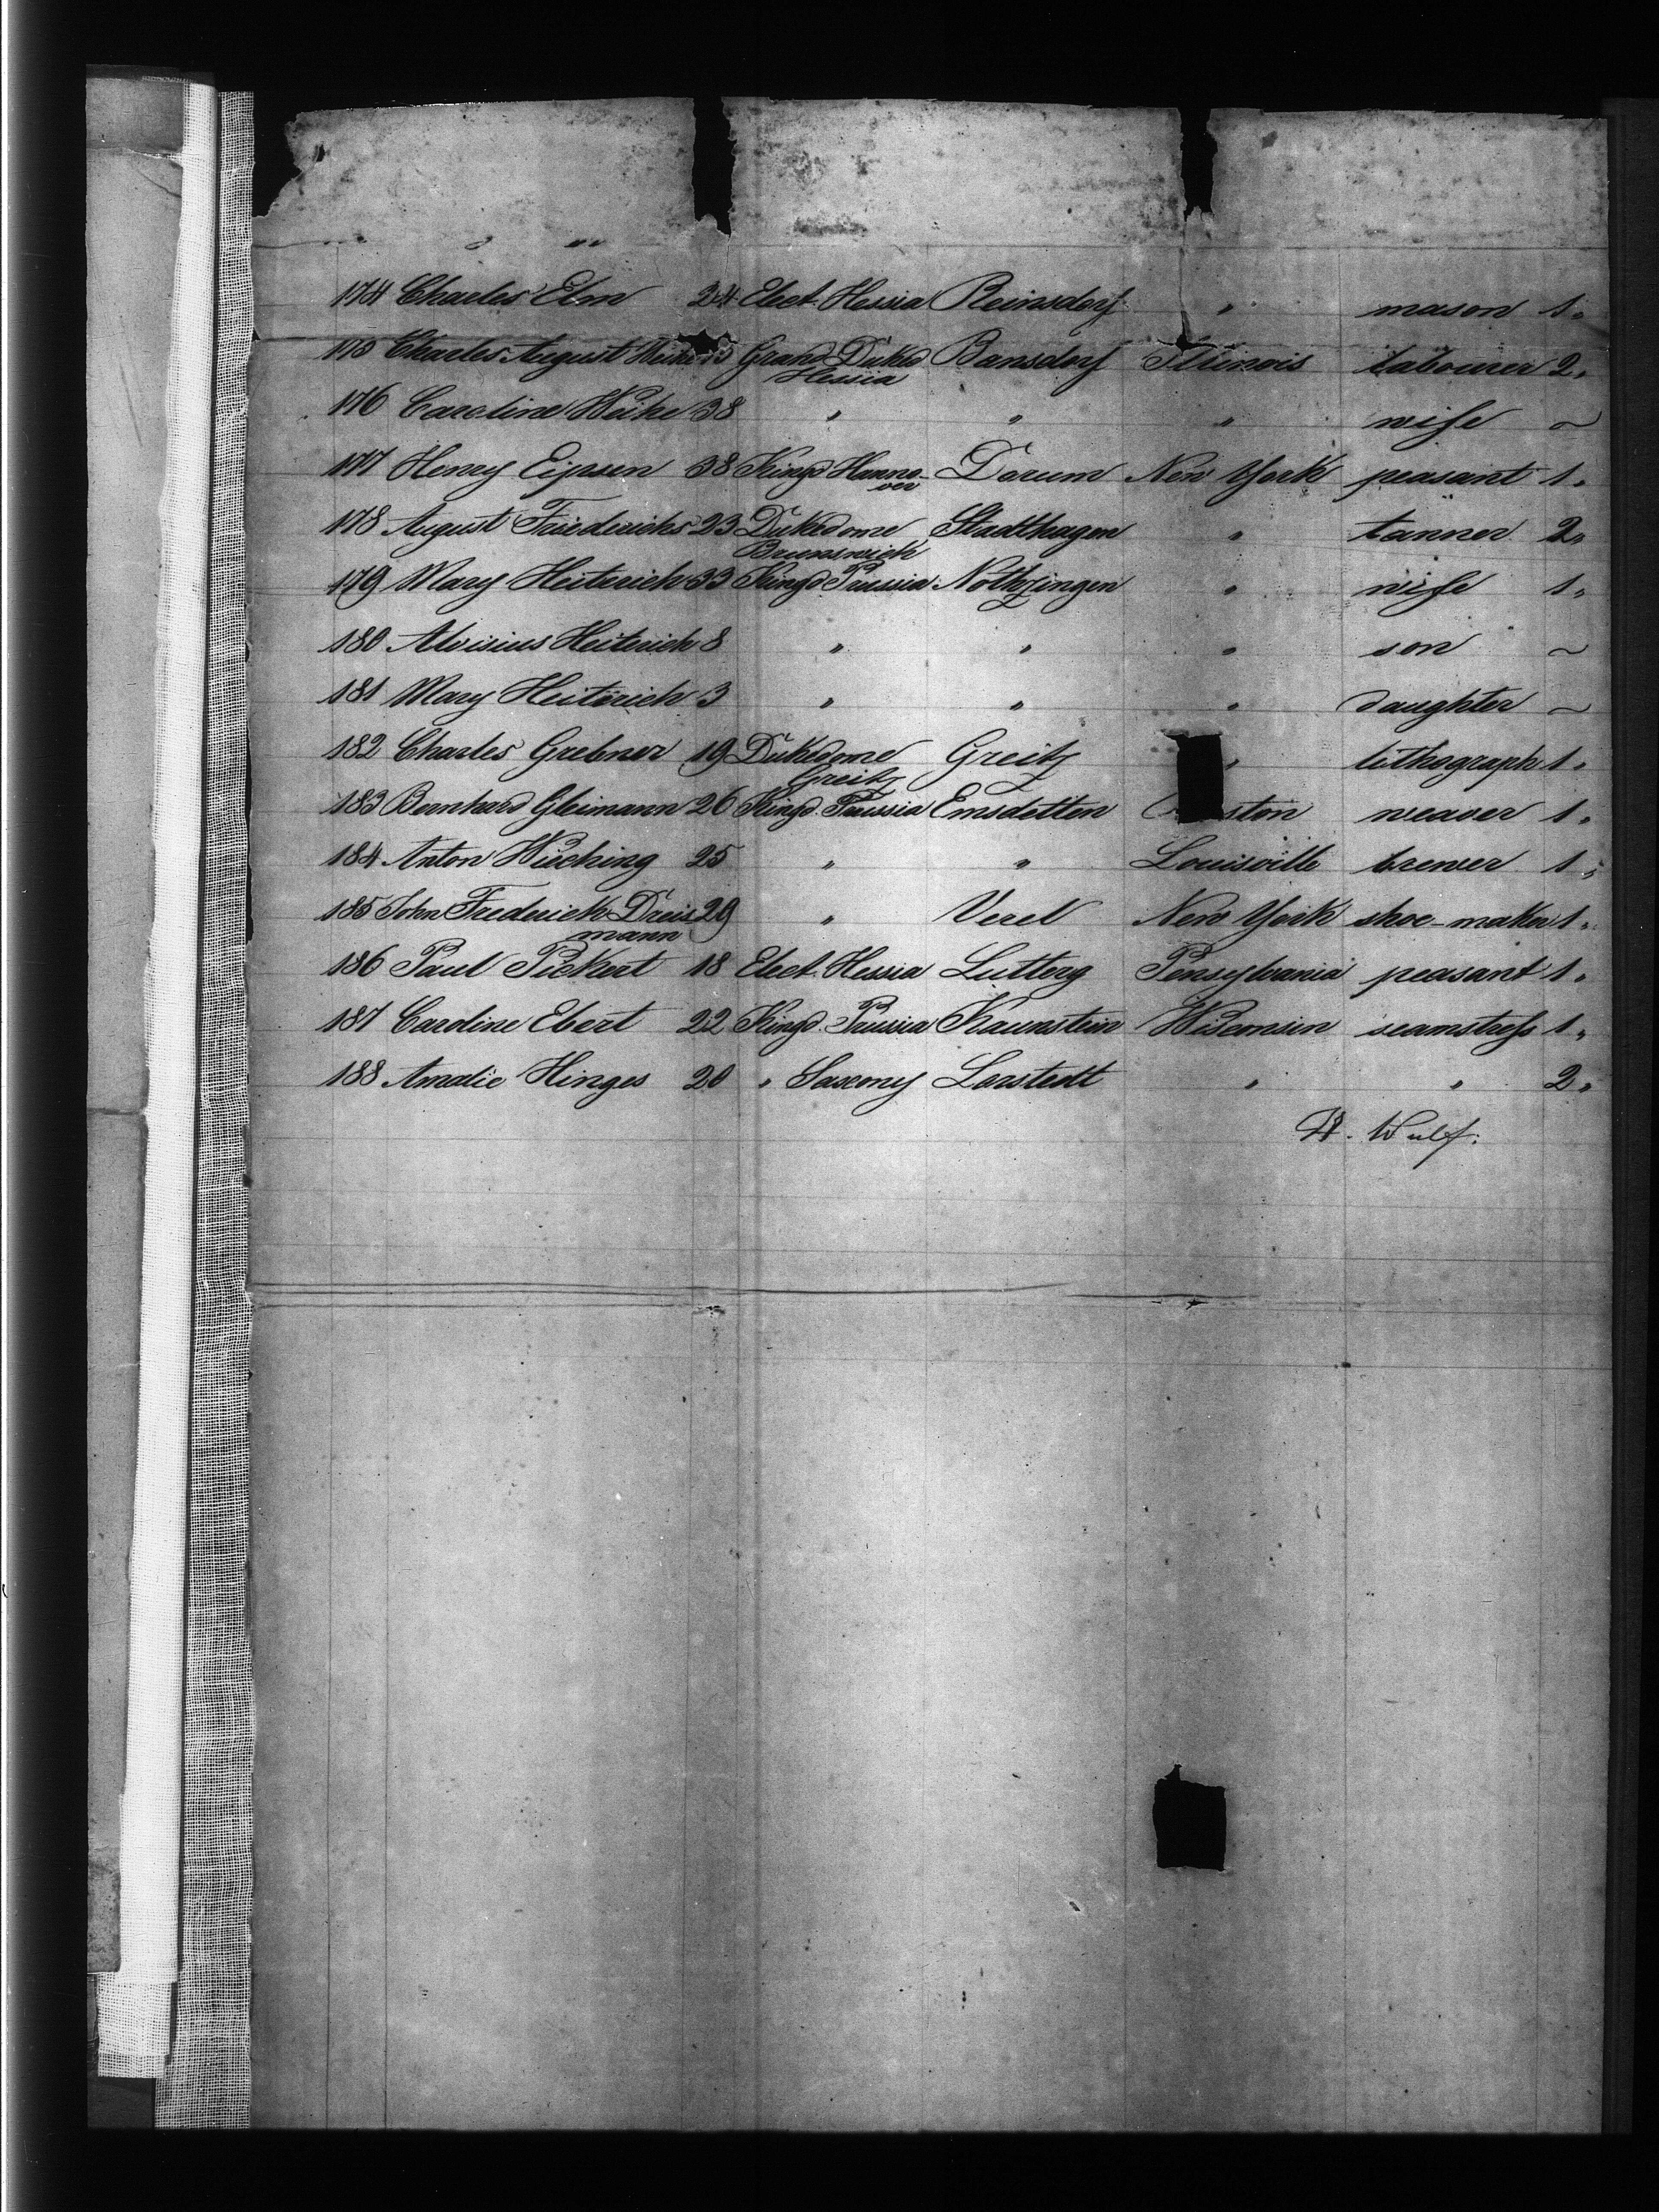 174 Charles Elm 24 Elect. Hessia Reinsdorf " mason 1 "
175 Charles August Grand Duked Bansdorf Illinois labourer 2 "
Hessia
176 Caroline 38 " " " wife ~
177 Henry Eipsen 38 Kingd Hanno- Dorum New York peasant 1 "
ver
178 August Friederichs 23 Dukedome Stadthagen " tanner 2 "
Brunswich
179 Mary Heiterich 33 Kingd Prussia " wife 1 "
180 Aloisius Heiterich 8 " " " son ~
181 Mary Heiterich 3 " " " daughter ~
182 Charles Grebner 19 Dukedome Greitz " lithograph 1 "
Greitz
183 Bernhard Gleimann 26 Kingd. Prussia Emsdetten ston weaver 1 "
184 Anton 25 " " Louisville brewer 1 "
185 John Frederich Dreis 29 " Verel New York shoe-maker 1 "
mann
186 Paul Pickert 18 Elect. Hessia Lutterg Pensylvania peasant 1 "
187 Caroline Ebert 22 Kingd. Prussia Kaunstein seamstress 1 "
188 Amalie Hinges 20 " Saxony Larstedt " " 2 "
H. Wulf.